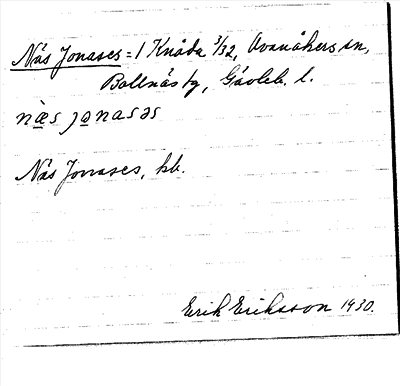 Näs Jonases = 1 Knåda 3/32, Ovanåkers sn,
Bollnäs tg, Gävleb. l.
næs jonasəs
Näs Jonases, kb.
Erik Eriksson 1930.